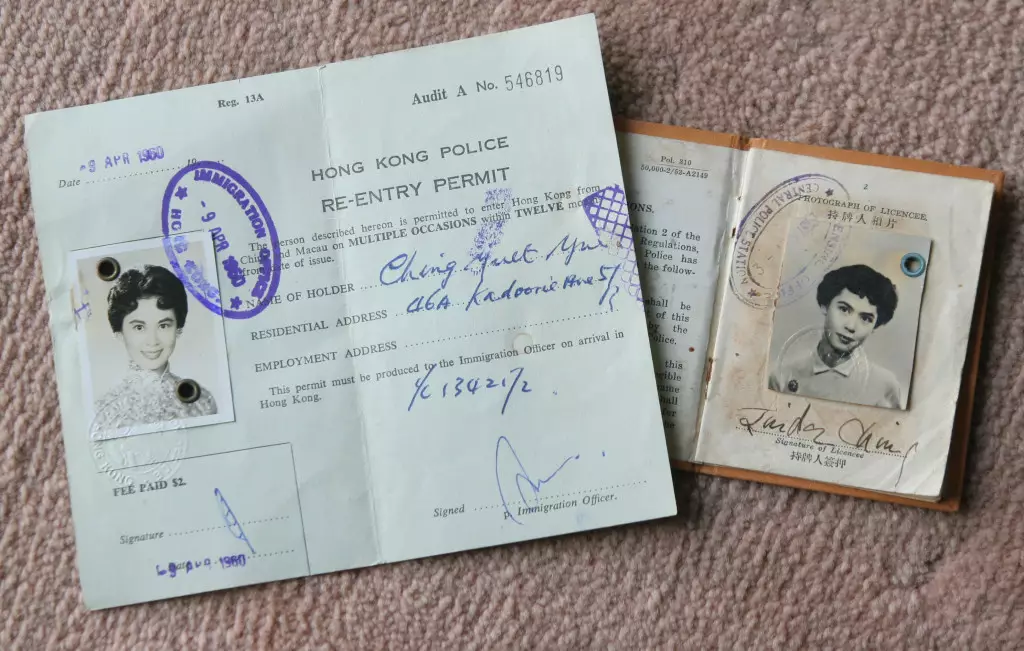 Reg. 13A
Audit A No. 546819
-9 APR 1960
Date 19
IMMIGRATION OFFICE
-9 APR 1960
HONG KONG
HONG KONG POLICE
RE-ENTRY PERMIT
The person described hereon is permitted to enter Hong Kong from
China and Macau on MULTIPLE OCCASIONS within TWELVE
from date of issue.
NAME OF HOLDER Ching Yuet Yue
RESIDENTIAL ADDRESS 46A Kadoorie Ave
EMPLOYMENT ADDRESS
This permit must be produced to the Immigration Officer on arrival in
Hong Kong.
134215/2
FEE PAID $2.
Signature
1960
Signed
p. Immigration Officer.
Pol. 810
50,000-2/52-A2149
IONS.
ation 2 of the
Regulations,
Police has
the follow-
shall be
of this
by the
lice.
this
rible
name
hall
fer
the
2
PHOTOGRAPH OF LICENCEE.
持牌人照片
CENTRAL POLICE STATION
Ching
Signature of Licencee
持牌人簽押